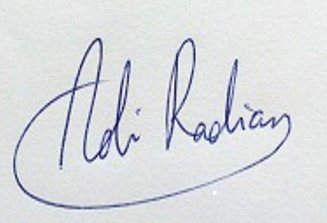 Adi Radian